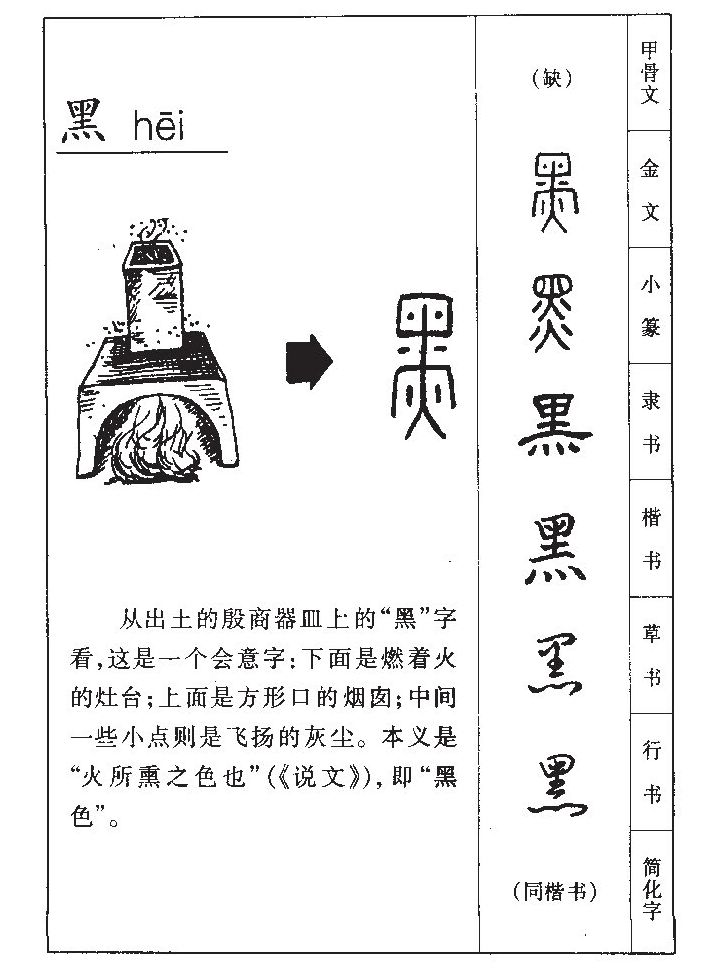 黑 hēi
黑
从出土的殷商器皿上的“黑”字
看,这是一个会意字:下面是燃着火
的灶台;上面是方形口的烟囱;中间
一些小点则是飞扬的灰尘。本义是
“火所熏之色也”(《说文》),即“黑
色”。
(缺)
甲骨文
黑
金文
黑
小篆
黑
隶书
黑
楷书
黑
草书
黑
行书
(同楷书)
简化字